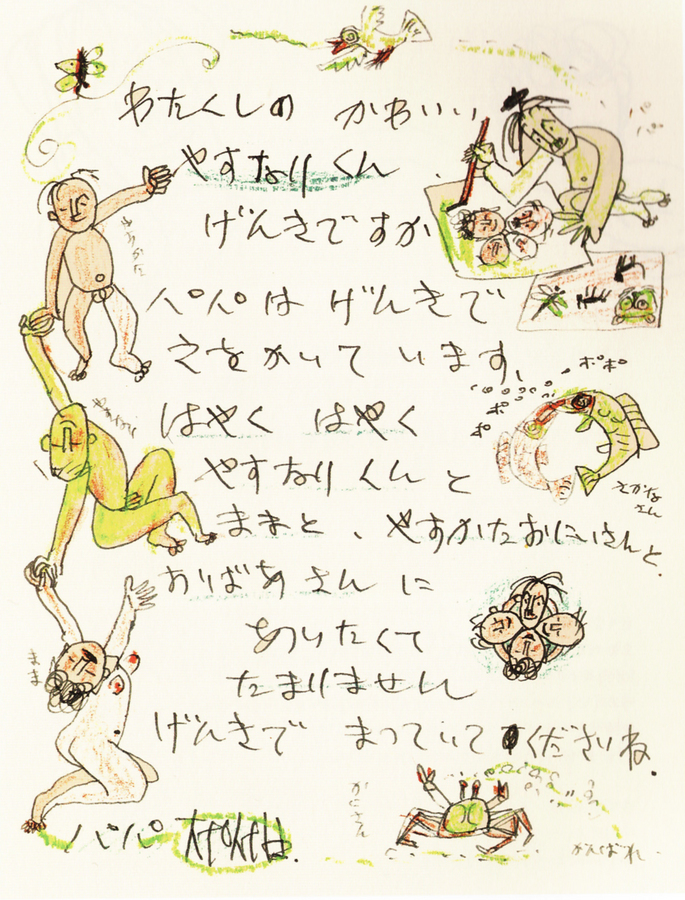 わたくしの かわいい
パパ
やすなりくん
げんきですか
やすかた
パパは げんきで
えをかいて います、
ポポ
ポ
ポ
はやく はやく
やすなりくん と
さかな
さん
ままと、やすかたおにいさんと、
おばあさん に
あいたくて
たまりません
まま
げんきで まっていて くださいね.
かにさん
パパ
がんばれ